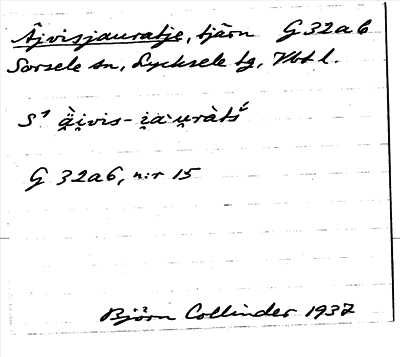 Åjvisjauratje, tjärn G 32 a 6
Sorsele sn, Lycksele tg, Vbt l.
G 32 a 6, n:r 15
Björn Collinder 1937